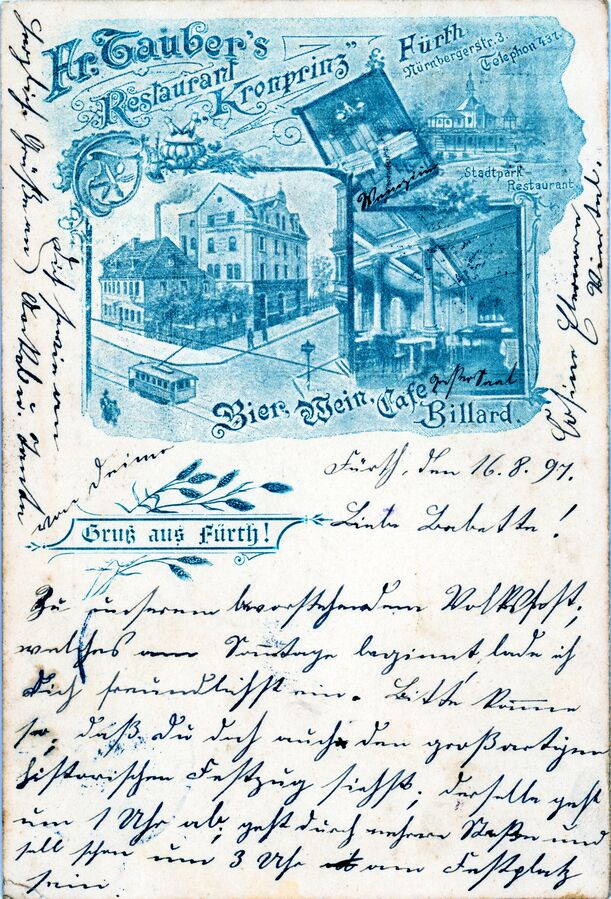 Fr. Tauber's
Restaurant
„Kronprinz"
Fürth
Nürnbergerstr. 3.
Telephon 437.
Stadtpark
Restaurant
Bier, Wein, Cafe
Billard.
großer Saal
Gruß aus Fürth!
Fürth, den 16.8.97.
Liebe Babette!
Zu unserem bevorstehendem Volksfest,
welches am Sonntage beginnt lade ich
Dich freundlichst ein. Bitte komme
so, daß Du doch auch den großartigen
historischen Festzug siehst; derselbe geht
um 1 Uhr ab; geht durch mehrere Straße und
soll schon um 3 Uhr am Festplatz
sein.
Herzliche Grüße an
von Deine